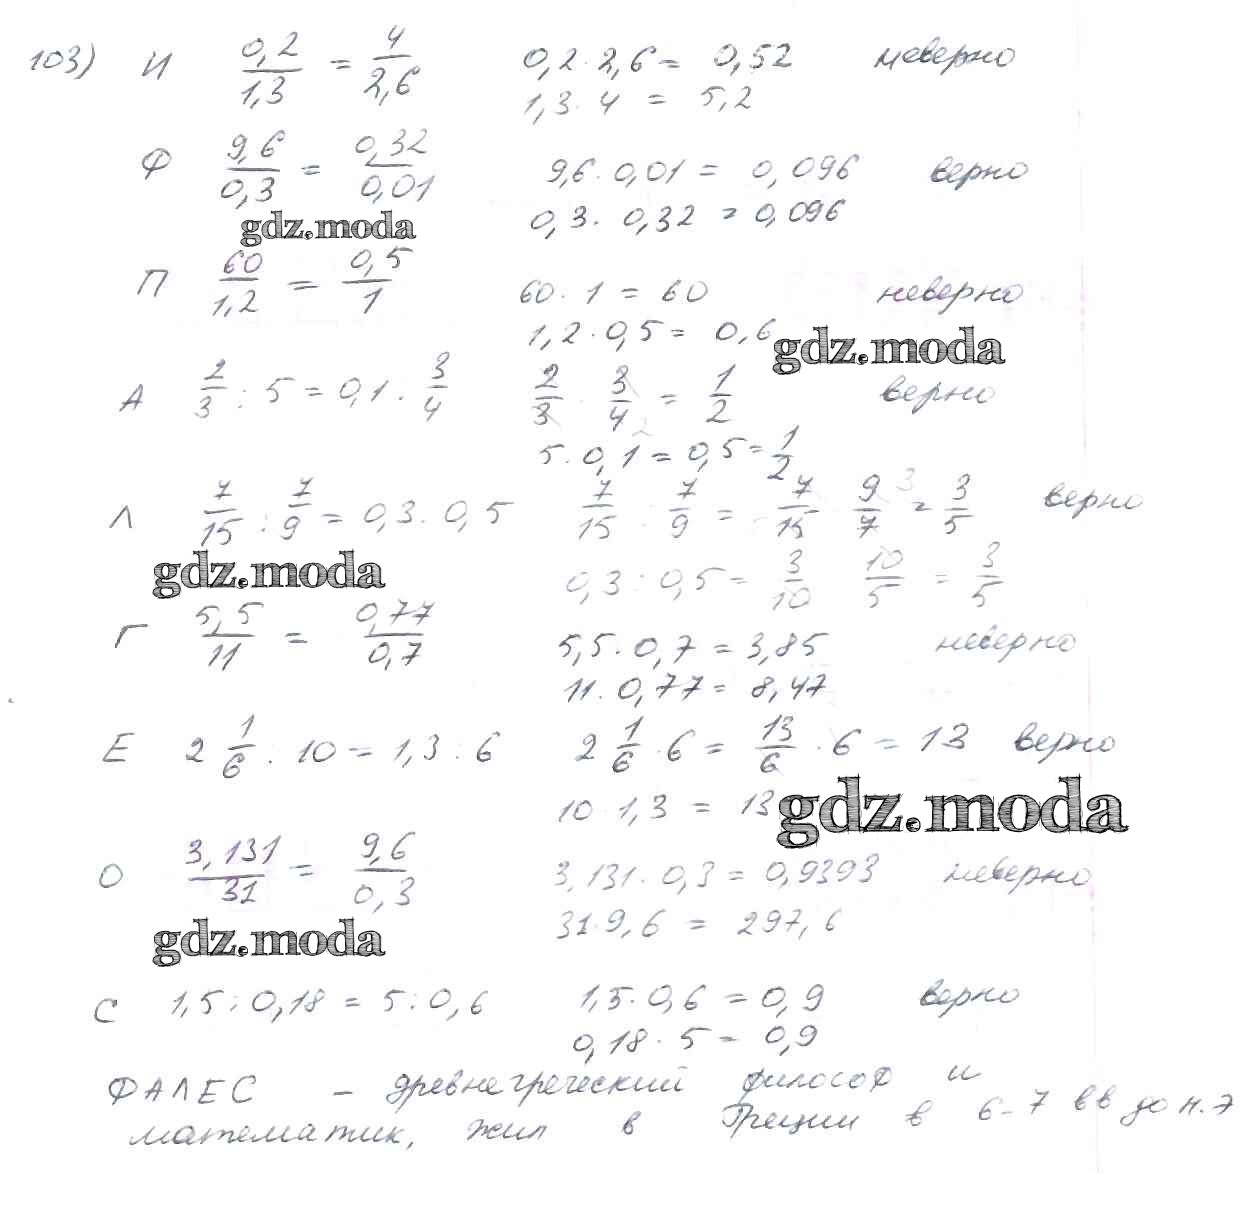 103) И 0,2/1,3 = 4/2,6 0,2 · 2,6 = 0,52 неверно
1,3 · 4 = 5,2
Ф 9,6/0,3 = 0,32/0,01 9,6 · 0,01 = 0,096 верно
0,3 · 0,32 = 0,096
gdz.moda
П 60/1,2 = 0,5/1 60 · 1 = 60 неверно
1,2 · 0,5 = 0,6
gdz.moda
А 2/3 : 5 = 0,1 · 3/4 2/3 · 3/4 = 1/2 верно
5 · 0,1 = 0,5 = 1/2
Л 7/15 : 7/9 = 0,3 · 0,5 7/15 : 7/9 = 7/15 9/7 = 3/5 верно
gdz.moda
0,3 : 0,5 = 3/10 10/5 = 3/5
Г 5,5/11 = 0,77/0,7 5,5 · 0,7 = 3,85 неверно
11 · 0,77 = 8,47
Е 2 1/6 : 10 = 1,3 : 6 2 1/6 · 6 = 13/6 · 6 = 13 верно
10 · 1,3 = 13
gdz.moda
О 3,131/31 = 9,6/0,3 3,131 · 0,3 = 0,9393 неверно
31 · 9,6 = 297,6
gdz.moda
С 1,5 : 0,18 = 5 : 0,6 1,5 · 0,6 = 0,9 верно
0,18 · 5 = 0,9
ФАЛЕС – древнегреческий философ и
математик, жил в Греции в 6-7 вв до н.э